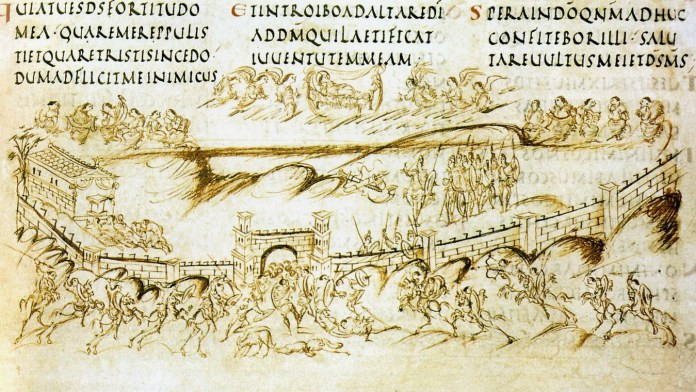 QUIATUESDSFORTITUDO
MEA·QUAREMEREPPULIS
TIETQUARETRISTISINCEDO
DUMADFLICITMEINIMICUS
ETINTROIBOADALTAREDĪ
ADDM̄QUILAETIFICAT
IUUENTUTEMMEAM
SPERAINDŌQNMADHUC
CONFITEBORILLI·SALU
TAREUULTUSMEIETDS̄MS̄